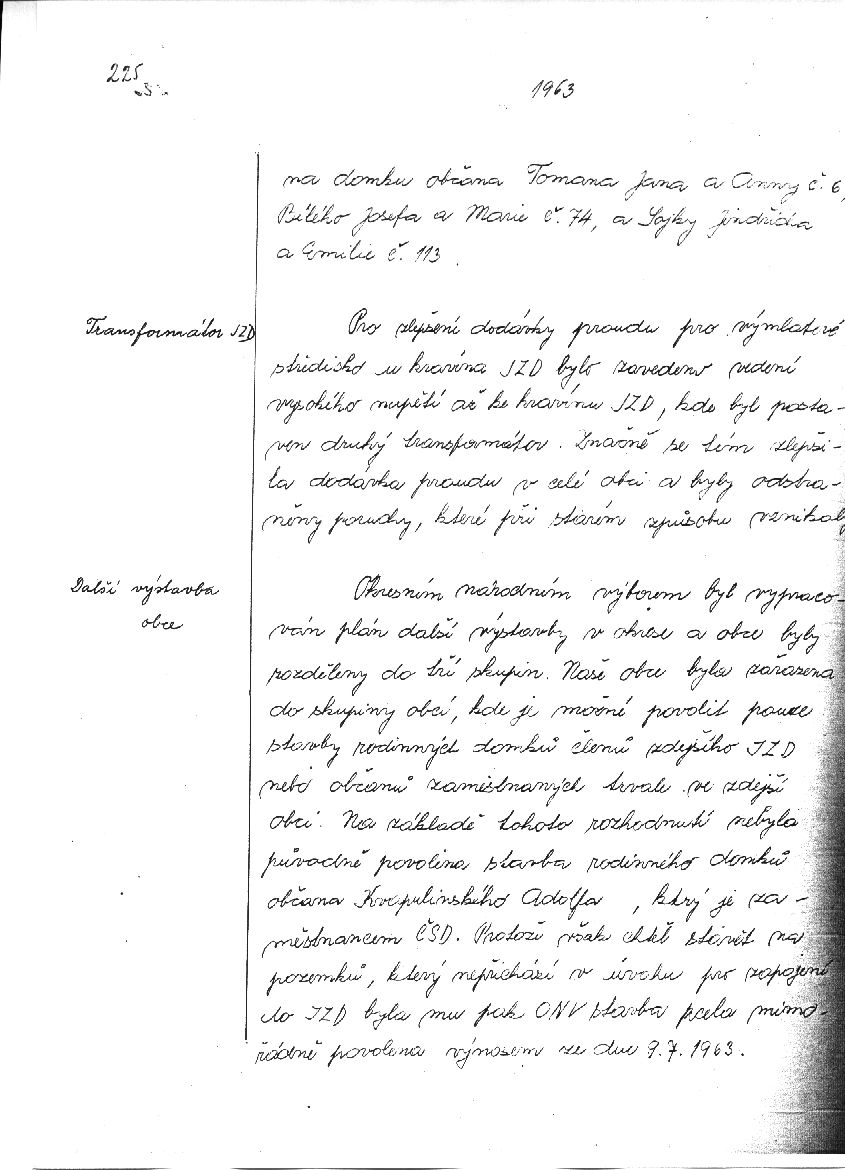 225
1963
na domku občana Tomana Jana a Anny č. 6,
Bílého Josefa a Marie č. 74, a Sojky Jindřicha
a Emilie č. 113.
Transformátor JZD
Pro zlepšení dodávky proudu pro výmlatové
středisko u kravína JZD bylo zavedeno vedení
vysokého napětí až ke kravínu JZD, kde byl posta-
ven druhý transformátor. Značně se tím zlepši-
la dodávka proudu v celé obci a byly odstra-
něny poruchy, které při starém způsobu vznikaly
Další výstavba
obce
Okresním národním výborem byl vypraco-
ván plán další výstavby v okrese a obce byly
rozděleny do tří skupin. Naše obce byla zařazena
do skupiny obcí, kde je možné povolit pouze
stavby rodinných domků členů zdejšího JZD
nebo občanů zaměstnaných trvale ve zdejší
obci. Na základě tohoto rozhodnutí nebyla
původně povolena stavba rodinného domků
občana Kvapulinského Adolfa, ktrý je za-
městnancem ČSD. Protože však chtěl stavět na
pozemků, který nepřichází v úvahu pro zapojení
do JZD byla mu pak ONV stavba zcela mimo-
řádně povolena výnosem ze dne 9.7.1963.